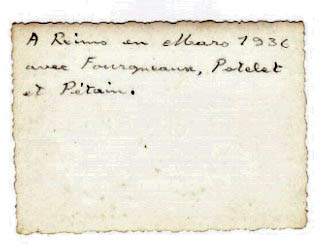 A Reims en Mars 1936
avec Fourqueaux, Potelet
et Pétain.